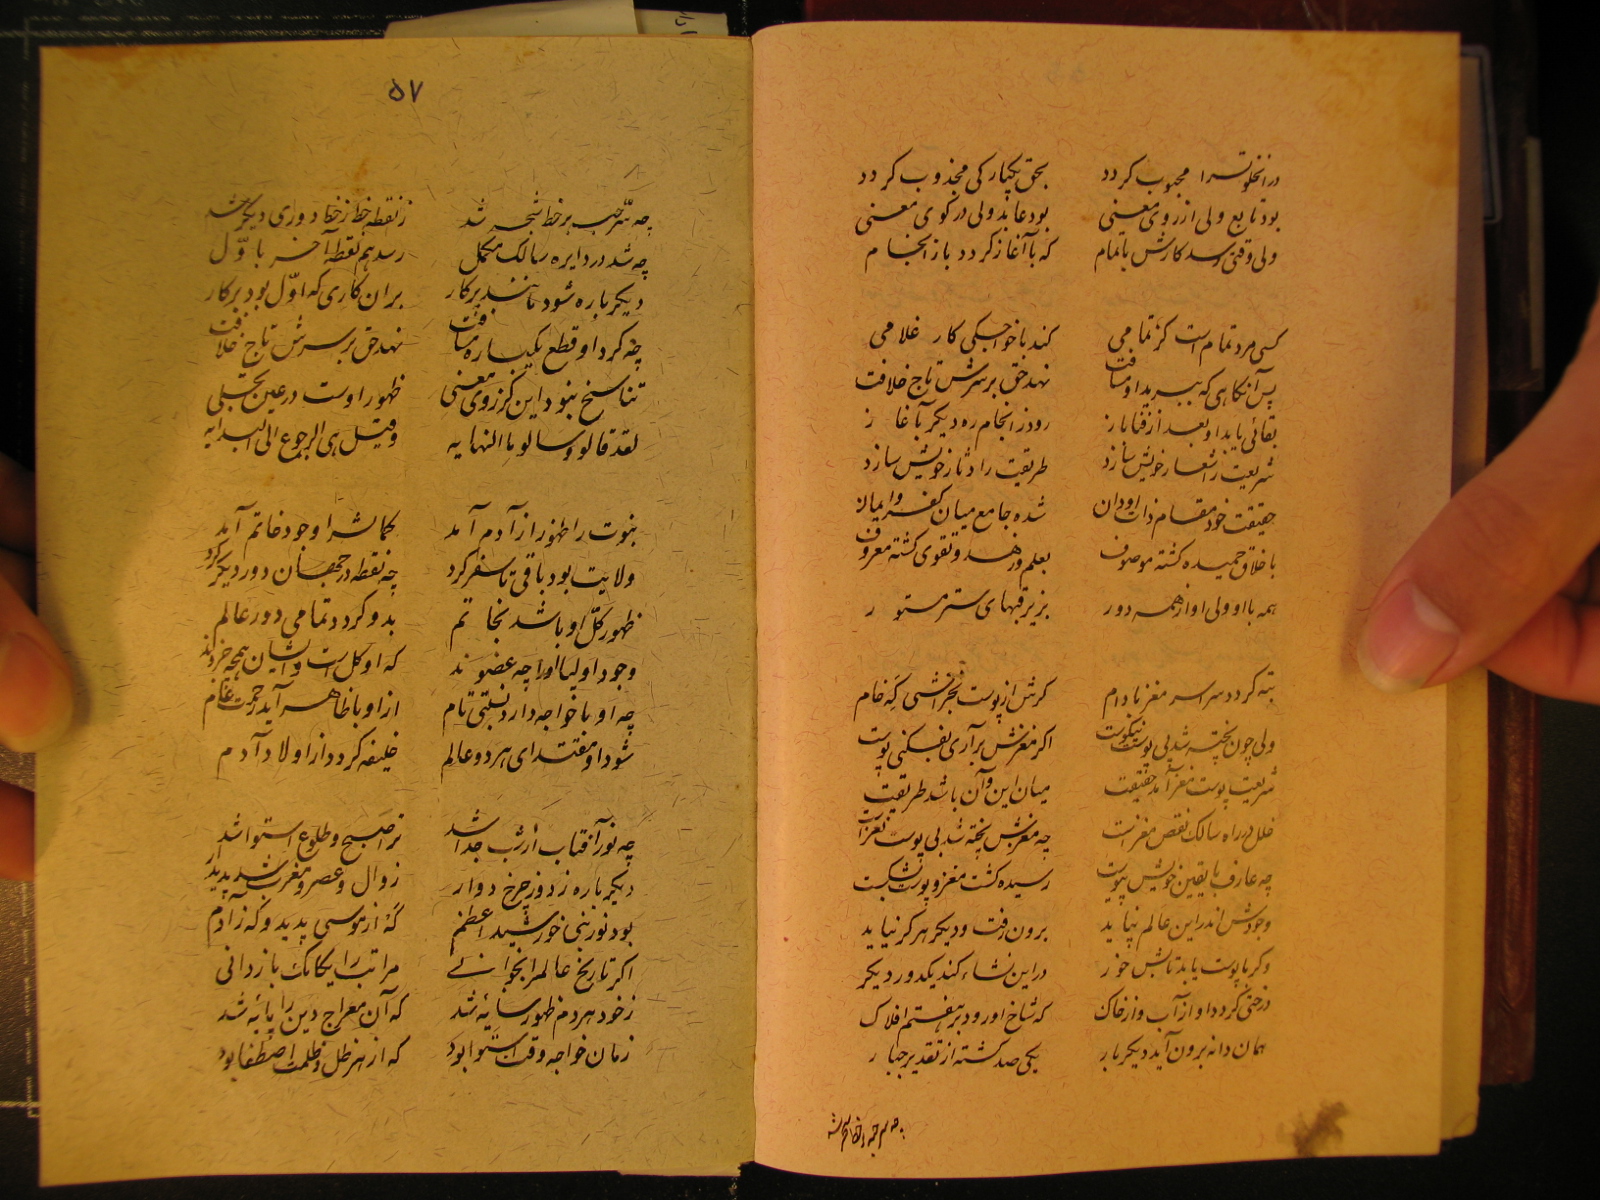 در انخلوتسرا محبوب کردد بحق یکبار کی مجذوب کردد
بود تابع ولی از روی معنی بود عابد ولی در کوی معنی
ولی وقتی رسد کارش باتمام که با آغاز کردد باز انجام
کسی مرد تمام است کز تمامی کند با خواجکی کار غلامی
پس آنکاهی که ببرید او مسافت نهد حق بر سرش تاج خلافت
بقائی یابد او بعد از فنا باز رود ز انجام ره دیکر بآغاز
شریعت را شعار خویش سازد طریقت را دثار خویش سازد
حقیقت خود مقام ذات او دان شده جامع میان کفر و ایمان
با خلاق حمیده کشته موصوف بعلم و زهد و تقوی کشته معروف
همه با او ولی او از همه دور بزیر قبهای ستر مستور
تبه کردد سراسر مغز بادام کرش از پوست بخراشی که خام
ولی چون پخته شد بی پوست نیکوست اکر مغزش برآری بفکنی پوست
شریعت پوست مغز آمد حقیقت میان این و آن باشد طریقت
خلل در راه سالک نقص مغز است چه مغزش پخته شد بی پوست نغز است
چه عارف با یقین خویش پیوست رسیده کشت مغز و پوست بشکست
وجودش اندر این عالم نپاید برون رفت و دیکر هرکز نیاید
وکر با پوست یابد تابش خور در این نشاء کند یکدور دیکر
درختی کردد او از آب و از خاک که شاخ او رود بر هفتم افلاک
همان دانه برون آید دیکر بار یکی صد کشته از تقدیر جبار
چه سر حبه بر خط شجر شد
۵۷
چه سّر حب بر خط شجر شد ز نقطه خط ز خط دوری دیکر شد
چه شد در دایره سالک مکمل رسد هم نقطه آخر باوّل
دیکر باره شود مانند پرکار بران کاری که اوّل بود بر کار
چه کرد او قطع یکباره مسافت نهد حق بر سرش تاج خلافت
تناسخ نبود این کز روی معنی ظهور اوست در عین تجلی
لقد قالو و سالو ما النهایه و قیل هی الرجوع الی البدایه
نبوت را ظهور از آدم آمد کمالشرا وجود خاتم آمد
ولایت بود باقی تا سفر کرد چه نقطه در جهان دور دیکر کرد
ظهور کلّ او باشد بخاتم بدو کردد تمامی دور عالم
وجود اولیا او را چه عضوند که او کل است و ایشان همچه جزوند
چه او با خواجه دارد نسبتی تام از او با ظاهر آید رحمت عام
شود او مقتدای هر دو عالم خلیفه کردد از اولاد آدم
چه نور آفتاب از شب جدا شد تر صبح و طلوع استوا شد
دیکر باره ز دور چرخ دوار زوال و عصر و مغرب شد پدیدار
بود نور نبی خورشید اعظم که از موسی پدید و که ز آدم
اکر تاریخ عالمرا بخوانی مراتب را یکایک باز دانی
ز خود هر دم ظهور سایهٔ شد که آن معراج دین را پایهٔ شد
زمان خواجه وقت استوا بود که از هر ظل و ظلمت اصطفا بود